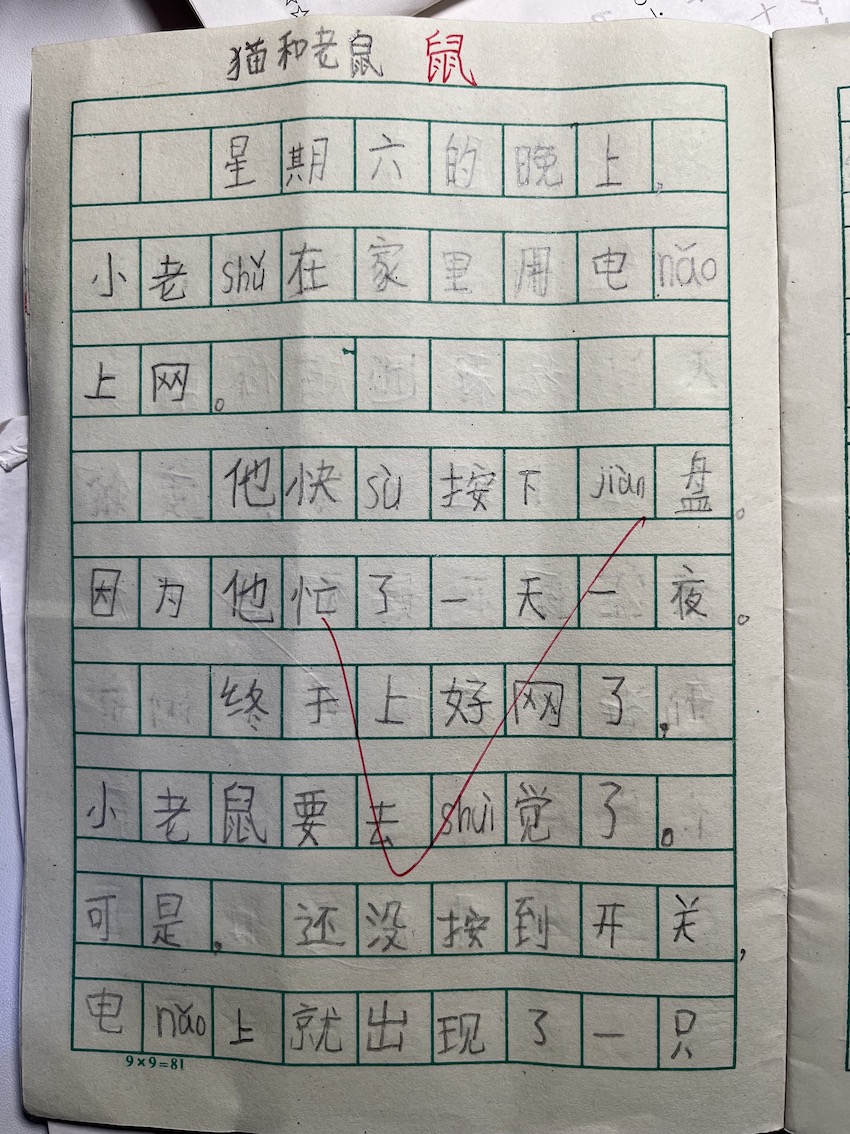 猫和老鼠 鼠
星期六的晚上，
小老shǔ在家里用电nǎo
上网。
他快sù按下jiàn盘。
因为他忙了一天一夜。
终于上好网了，
小老鼠要去shuì觉了。
可是，还没按到开关，
电nǎo上就出现了一只
9×9=81